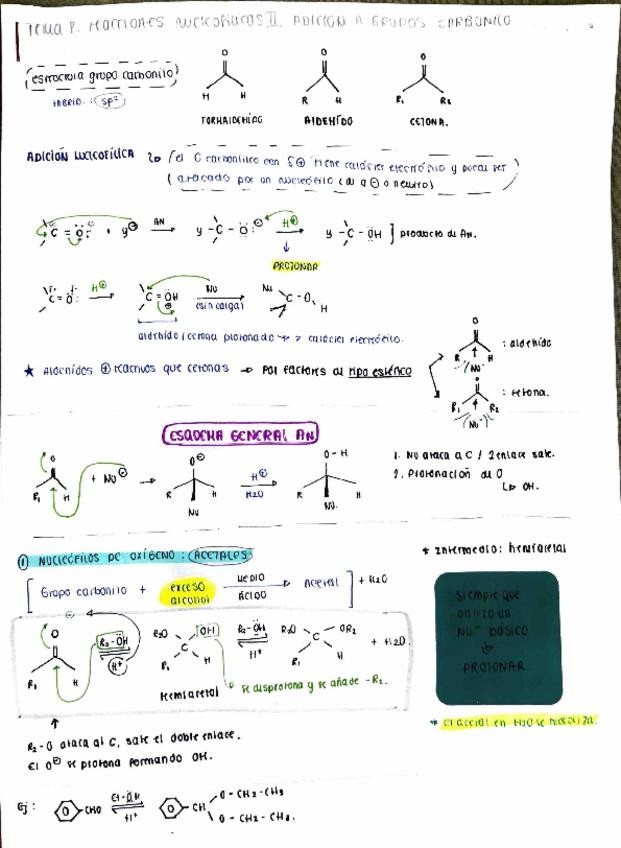 Tema 8. reacciones nucleofílicas II. ADICIÓN A GRUPOS CARBONILO
estructura grupo carbonilo
HIBRID.: sp²
O O O
H H R H R₁ R₂
FORMALDEHIDO ALDEHÍDO CETONA.
ADICIÓN NUCLEOFÍLICA
el C carbonílico con δ⊕ tiene carácter electrófilo y puede ser
atacado por un nucleófilo (de q ⊖ o neutro)
C = O + y⊖ AN y - C - O⊖ H⊕ y - C - OH ] producto de An.
PROTONAR
C = O H⊕ C = OH Nu (sin carga) Nu C - O H
aldehído/cetona protonado → > carácter electrófilo.
O
R H : aldehído
Nu⁻
★ Aldehídos ⊕ reactivos que cetonas → Por factores de tipo estérico
O
R₁ R₂ : cetona.
Nu⁻
ESQUEMA GENERAL AN
O R₁ H + NU⊖ → O⊖ R H NU H⊕ H2O O-H R H NU.
1. Nu ataca a C / 2 enlace sale.
2. Protonación de O
↳ OH.
① NUCLEÓFILOS DE OXÍGENO: ACETALES
* Intermedio: hemiacetal
[ Grupo carbonilo + exceso alcohol MEDIO ÁCIDO Acetal ] + H2O
Siempre que
utilizo un
Nu⁻ básico
↓
PROTONAR
O R₁ H R₂-OH H⁺ R₂O OH R₁ H R₂-OH H⁺ R₂O OR₂ R₁ H + H2O.
Hemiacetal se desprotona y se añade -R₂.
* El acetal en H2O se hidroliza.
R₂-O ataca al C, sale el doble enlace.
El O⊖ se protona formando OH.
Ej: CHO Et-OH H⁺ CH O-CH2-CH3
O-CH2-CH3.